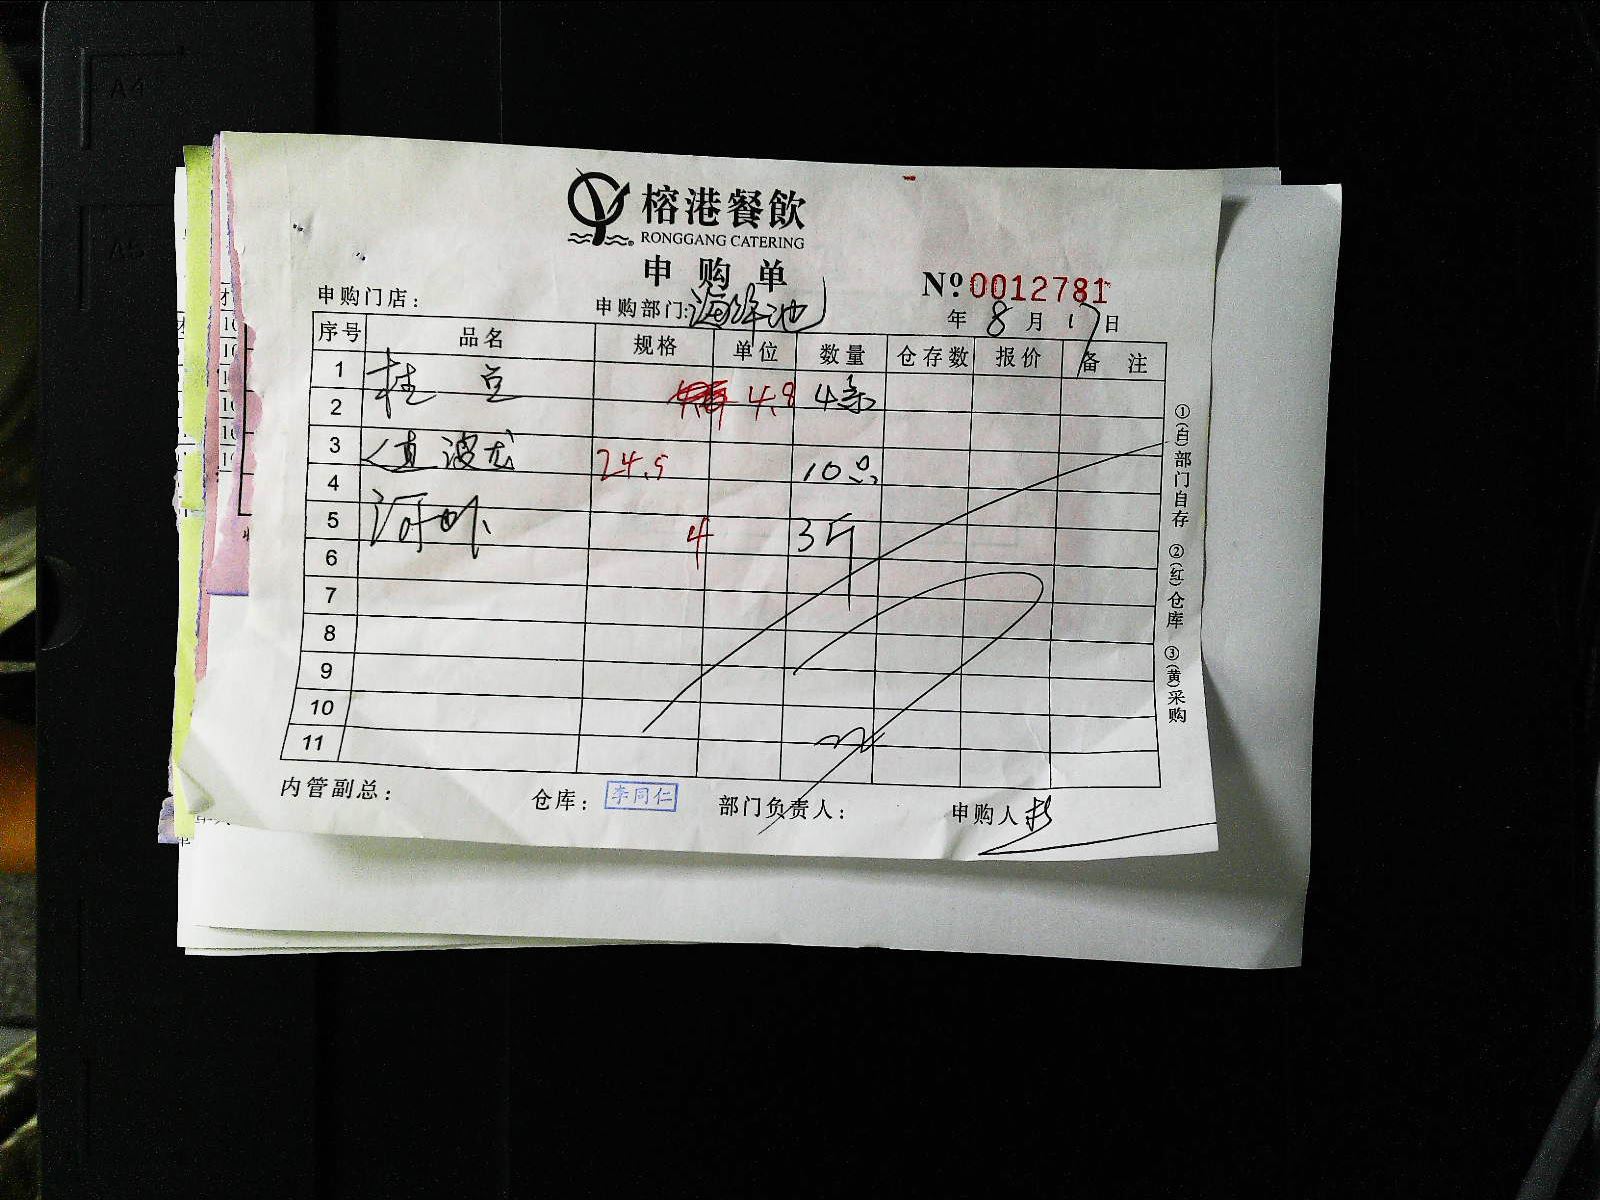 榕港餐飲
RONGGANG CATERING
申购单
№ 0012781
申购门店： 申购部门：海鲜池 年 8 月 17 日
序号 品名 规格 单位 数量 仓存数 报价 备注
1 桂 4.8 4条
2
3 波龙 24.5 10只
4
5 河虾 4 3斤
6
7
8
9
10
11
①(白)部门自存 ②(红)仓库 ③(黄)采购
内管副总： 仓库：李同仁 部门负责人： 申购人：
A4
A5